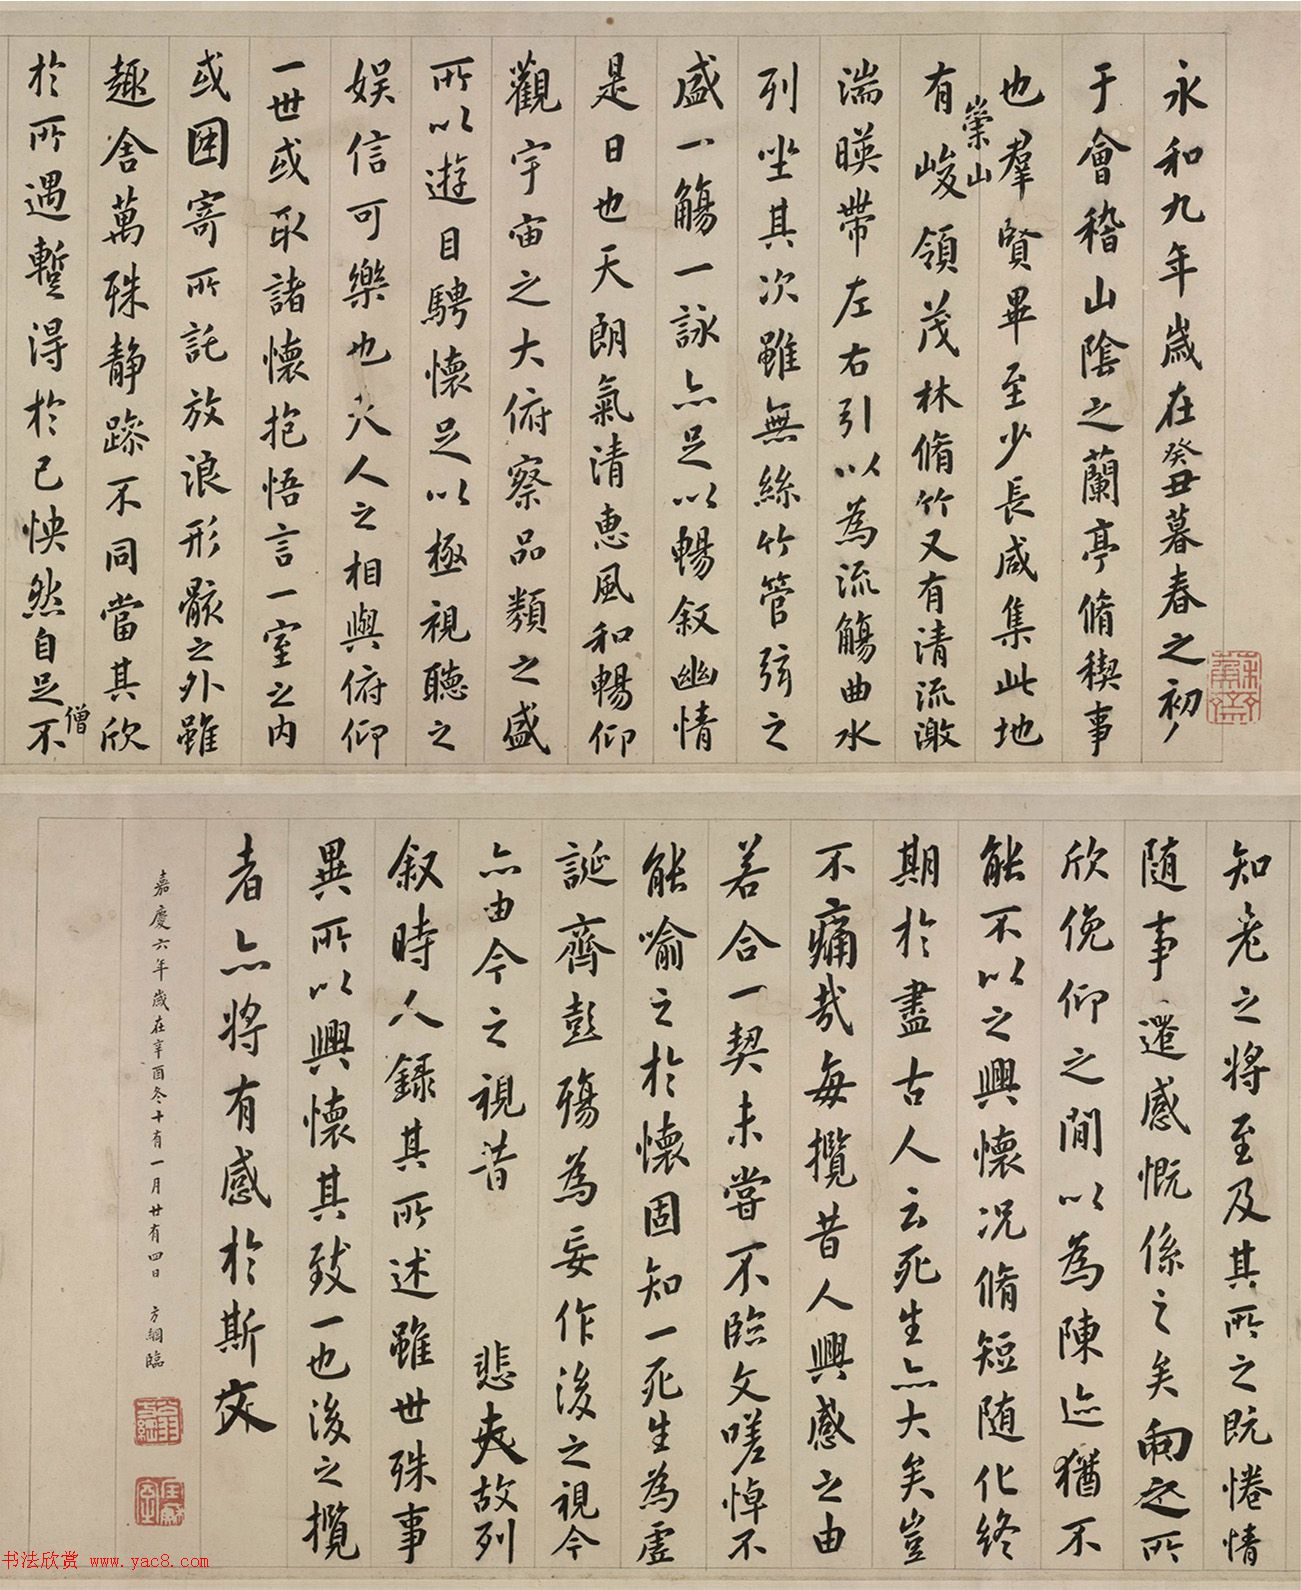 永和九年歲在癸丑暮春之初
于會稽山陰之蘭亭脩稧事
也羣賢畢至少長咸集此地
崇山
有峻領茂林脩竹又有清流激
湍暎帶左右引以為流觴曲水
列坐其次雖無絲竹管弦之
盛一觴一詠亦足以暢叙幽情
是日也天朗氣清惠風和暢仰
觀宇宙之大俯察品類之盛
所以遊目騁懷足以極視聽之
娛信可樂也夫人之相與俯仰
一世或取諸懷抱悟言一室之內
或因寄所託放浪形骸之外雖
趣舍萬殊靜躁不同當其欣
僧
於所遇暫得於己怏然自足不
知老之將至及其所之既惓情
隨事遷感慨係之矣向之所
欣俛仰之閒以為陳迹猶不
能不以之興懷況脩短隨化終
期於盡古人云死生亦大矣豈
不痛哉每攬昔人興感之由
若合一契未嘗不臨文嗟悼不
能喻之於懷固知一死生為虛
誕齊彭殤為妄作後之視今
亦由今之視昔 悲夫故列
叙時人錄其所述雖世殊事
異所以興懷其致一也後之攬
者亦將有感於斯文
嘉慶六年歲在辛酉冬十有一月廿有四日 方綱臨
书法欣赏 www.yac8.com